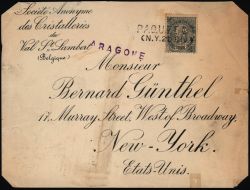 Société Anonyme
des Cristalleries
du
Val St. Lambert
(Belgique)
ARAGONE
PAQUE
CN.Y.2
Monsieur
Bernard Günthel
17, Murray Street, West of Broadway,
New-York.
Etats-Unis.